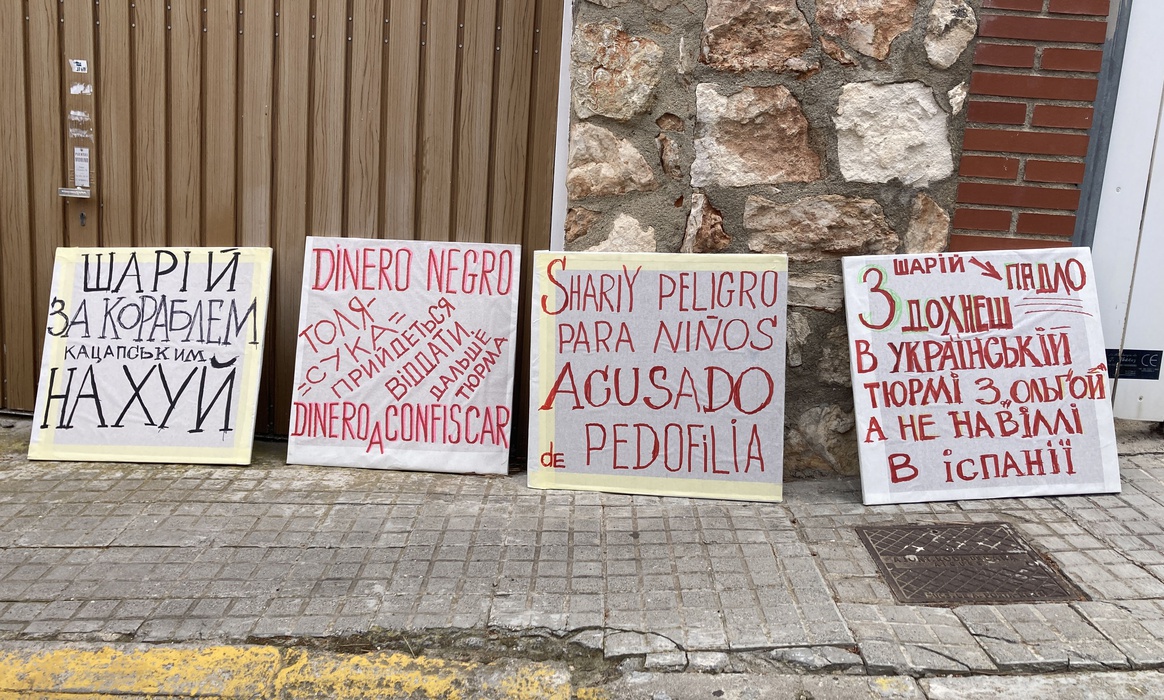 ШАРІЙ
ЗА КОРАБЛЕМ
КАЦАПСЬКИМ
НА ХУЙ
DINERO NEGRO
ТОЛЯ-
=СУКА=
ПРИЙДЕТЬСЯ
ВІДДАТИ
ДАЛЬШЕ
ТЮРМА
DINERO A CONFISCAR
SHARIY PELIGRO
PARA NIÑOS
ACUSADO
de PEDOFiLIA
ШАРІЙ ПАДЛО
ЗДОХНЕШ
В УКРАЇНСЬКІЙ
ТЮРМІ З „ОЛЬГОЙ"
А НЕ НА ВІЛЛІ
В ІСПАНІЇ